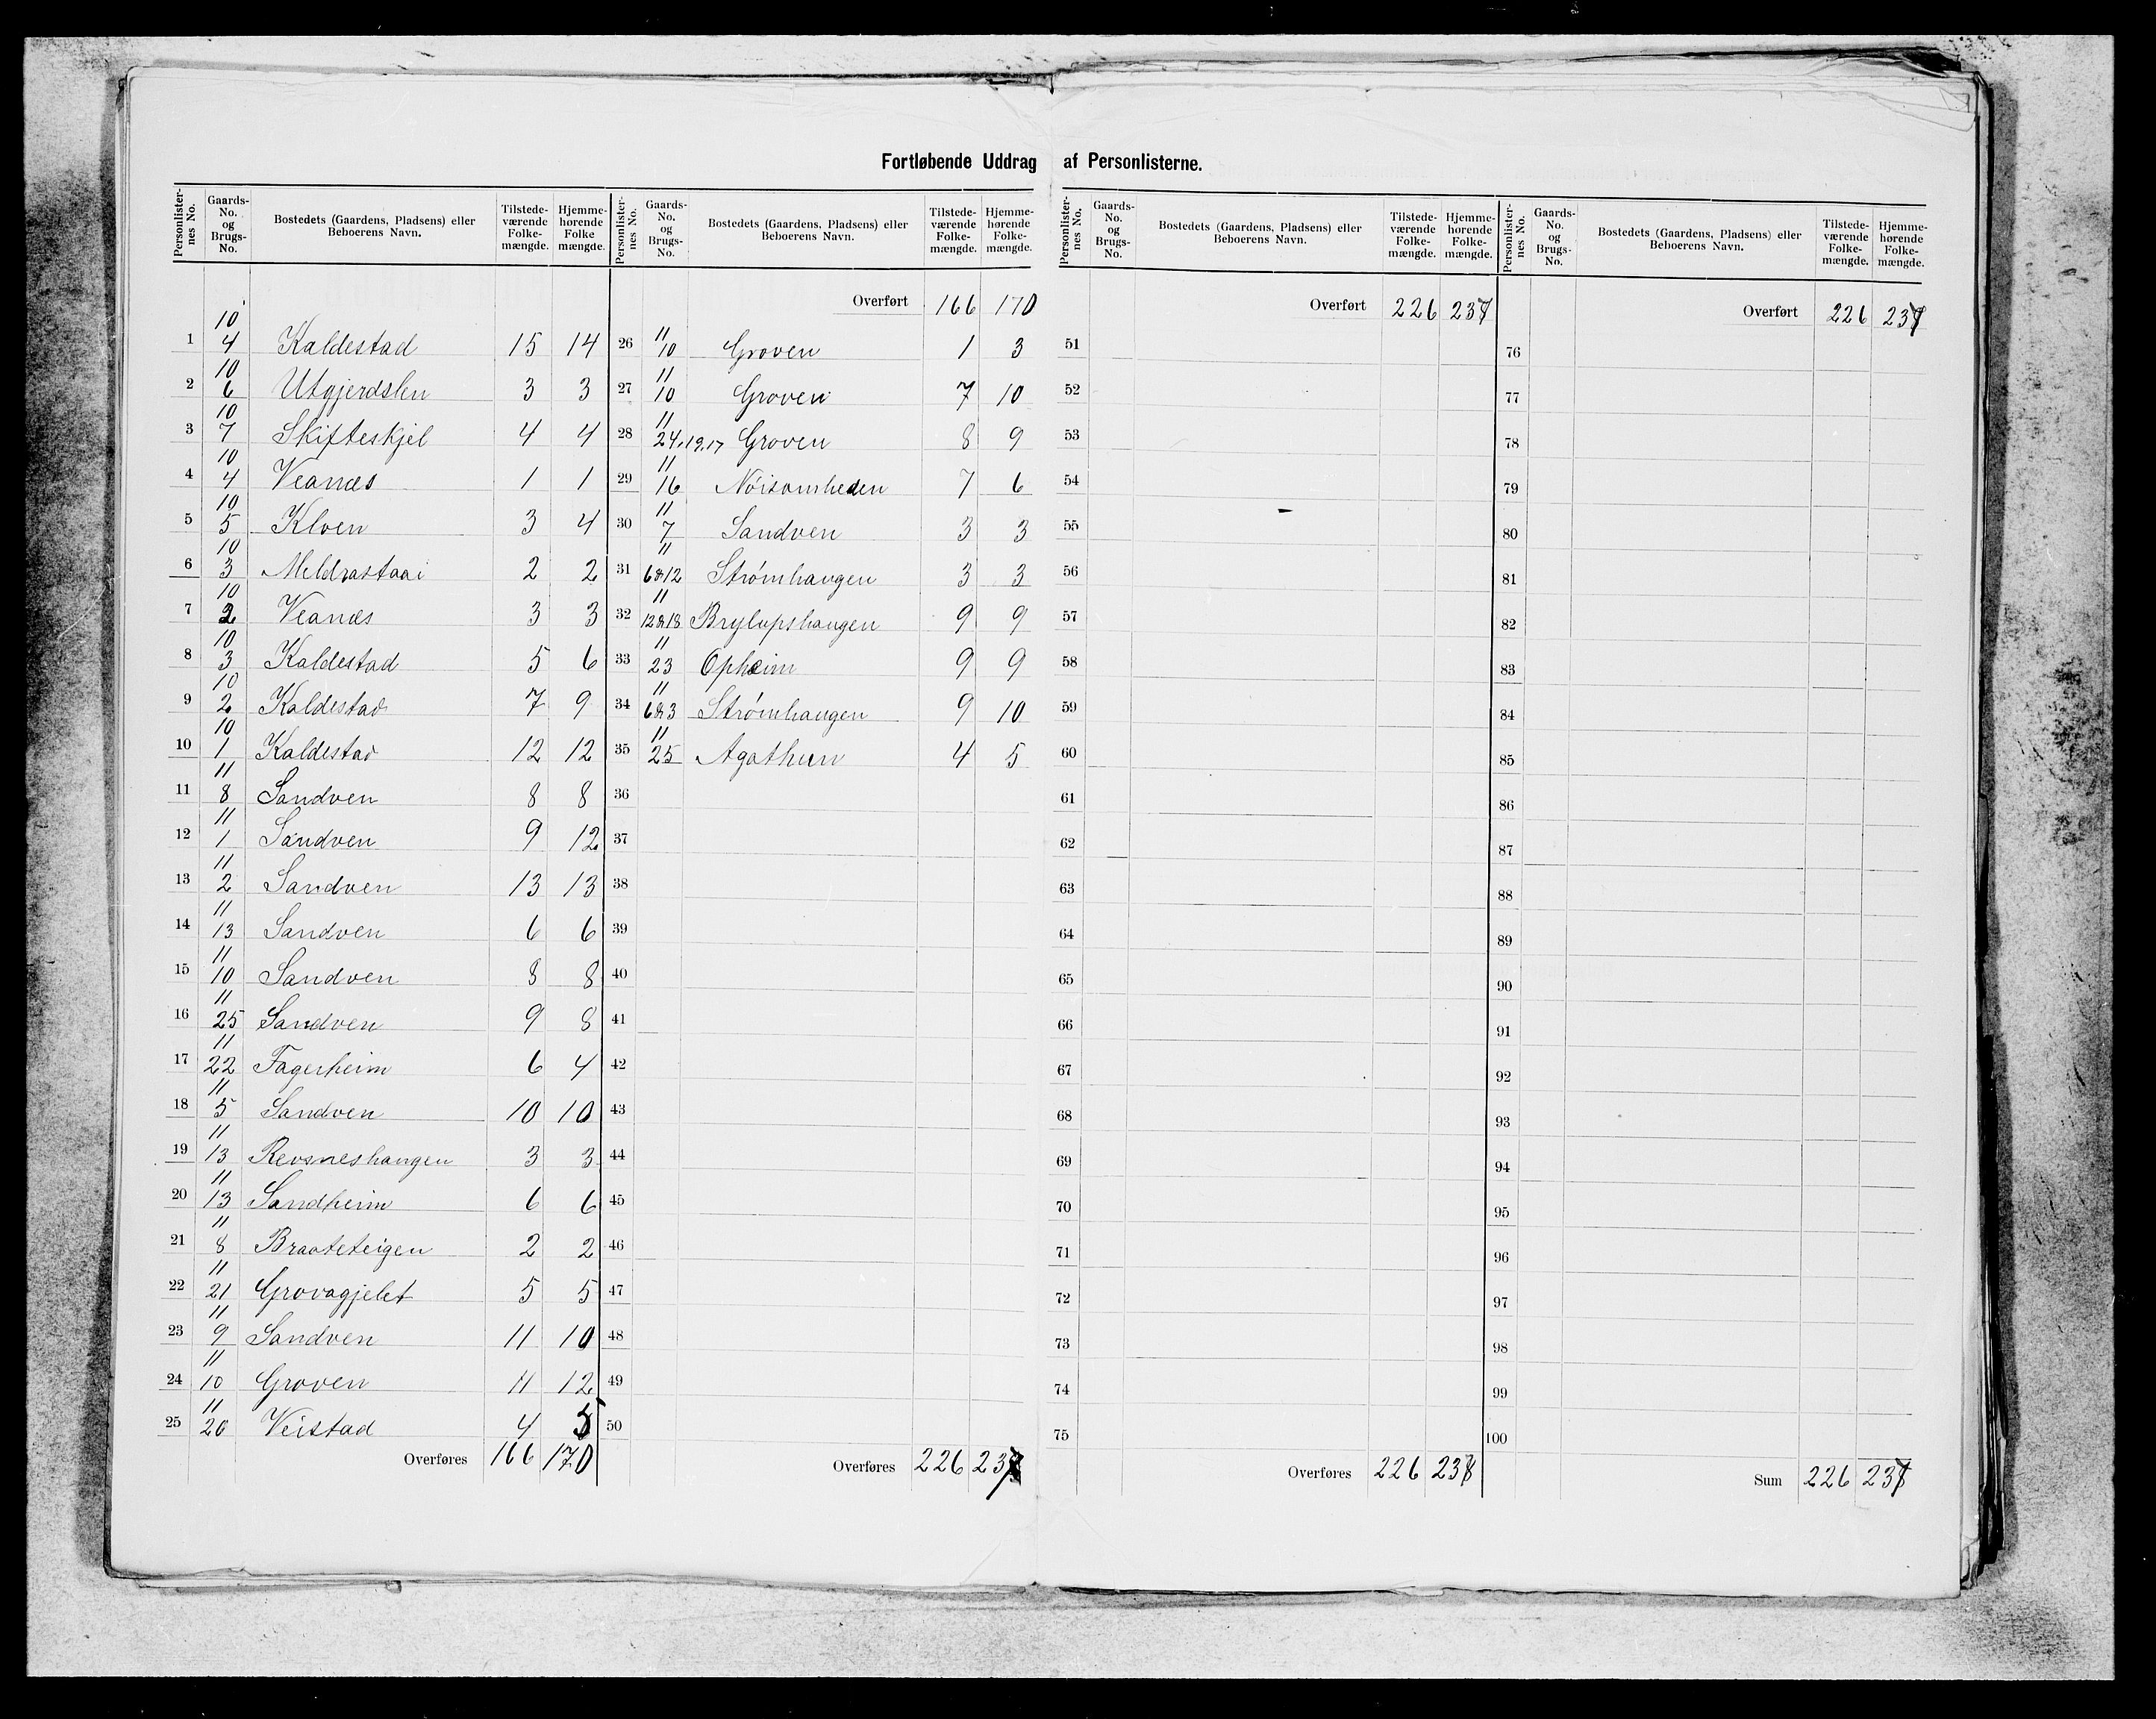 Fortløbende Uddrag af Personlisterne.
Personlister-nes No. | Gaards-No. og Brugs-No. | Bostedets (Gaardens, Pladsens) eller Beboerens Navn. | Tilstede-værende Folke-mængde. | Hjemme-hørende Folke mængde.
1 10/4 Kaldestad 15 14
2 10/6 Utgjerdslen 3 3
3 10/7 Skifteskjel 4 4
4 10/4 Veanæs 1 1
5 10/5 Kloen 3 4
6 10/3 2 2
7 10/2 Veanæs 3 3
8 10/3 Kaldestad 5 6
9 10/2 Kaldestad 7 9
10 10/1 Kaldestad 12 12
11 11/8 Sandven 8 8
12 11/1 Sandven 9 12
13 11/2 Sandven 13 13
14 11/13 Sandven 6 6
15 11/10 Sandven 8 8
16 11/25 Sandven 9 8
17 11/22 Fagerheim 6 4
18 11/5 Sandven 10 10
19 11/13 Revsneshaugen 3 3
20 11/13 Sandheim 6 6
21 11/8 Braateteigen 2 2
22 11/21 Grovagjelet 5 5
23 11/9 Sandven 11 10
24 11/10 Groven 11 12
25 11/20 Veistad 4 5
Overføres 166 170
Personlister-nes No. | Gaards-No. og Brugs-No. | Bostedets (Gaardens, Pladsens) eller Beboerens Navn. | Tilstede-værende Folke-mængde. | Hjemme-hørende Folke-mængde.
Overført 166 170
26 11/10 Groven 1 3
27 11/10 Groven 7 10
28 11/24,19,17 Groven 8 9
29 11/16 Nöisomheden 7 6
30 11/7 Sandven 3 3
31 11/6&12 Strømhaugen 3 3
32 11/12&18 Brylupshaugen 9 9
33 11/23 Opheim 9 9
34 11/6&3 Strømhaugen 9 10
35 11/25 Agathun 4 5
36
37
38
39
40
41
42
43
44
45
46
47
48
49
50
Overføres 226 237
Personlister-nes No. | Gaards-No. og Brugs-No. | Bostedets (Gaardens, Pladsens) eller Beboerens Navn. | Tilstede-værende Folke-mængde. | Hjemme-hørende Folke-mængde.
Overført 226 237
51
52
53
54
55
56
57
58
59
60
61
62
63
64
65
66
67
68
69
70
71
72
73
74
75
Overføres 226 237
Personlister-nes No. | Gaards-No. og Brugs-No. | Bostedets (Gaardens, Pladsens) eller Beboerens Navn. | Tilstede-værende Folke-mængde. | Hjemme-hørende Folke-mængde.
Overført 226 237
76
77
78
79
80
81
82
83
84
85
86
87
88
89
90
91
92
93
94
95
96
97
98
99
100
Sum 226 237